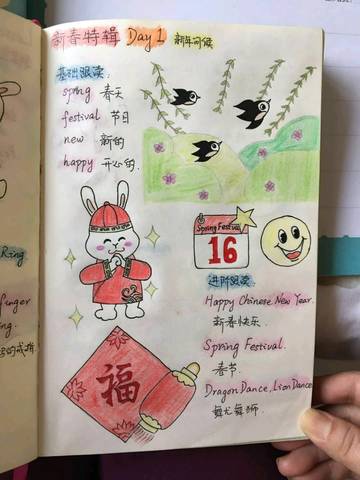 新春特辑 Day 1 新年问候
基础跟读:
spring 春天
festival 节日
new 新的
happy 开心的.
Spring Festival
16
进阶跟读:
Happy Chinese New Year.
新春快乐.
Spring Festival.
春节.
Dragon Dance, Lion Dance
舞龙舞狮.
福
Ring
finger